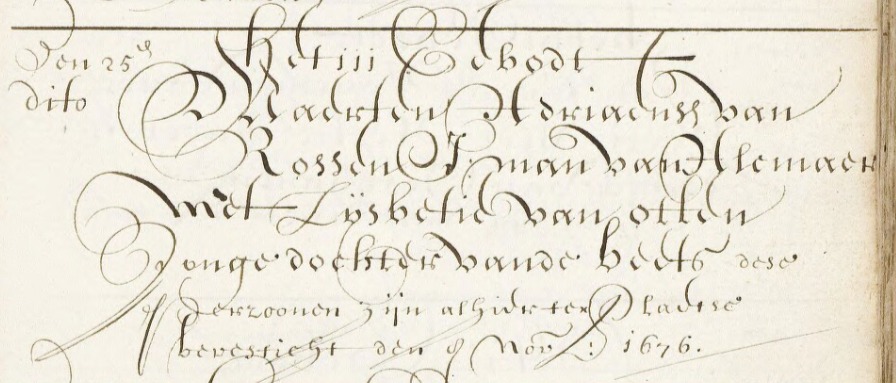 Den 25en Het iii Gebodt
dito Maerten Adriaensz van
Rossen J: man van Alcmaer
met Lijsbetie van otten
Jonge dochter vande beets dese
perzoonen zijn alhier ter Plaetse
bevesticht den 9 Nov: 1676.